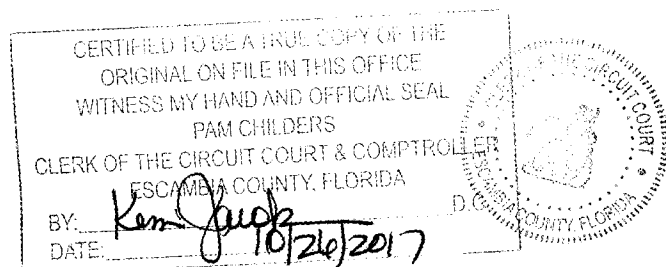 CERTIFIED TO BE A TRUE COPY OF THE
ORIGINAL ON FILE IN THIS OFFICE
WITNESS MY HAND AND OFFICIAL SEAL
PAM CHILDERS
CLERK OF THE CIRCUIT COURT & COMPTROLLER
ESCAMBIA COUNTY, FLORIDA
BY: D.C.
DATE: 10/26/2017
OF THE CIRCUIT COURT
ESCAMBIA COUNTY, FLORIDA